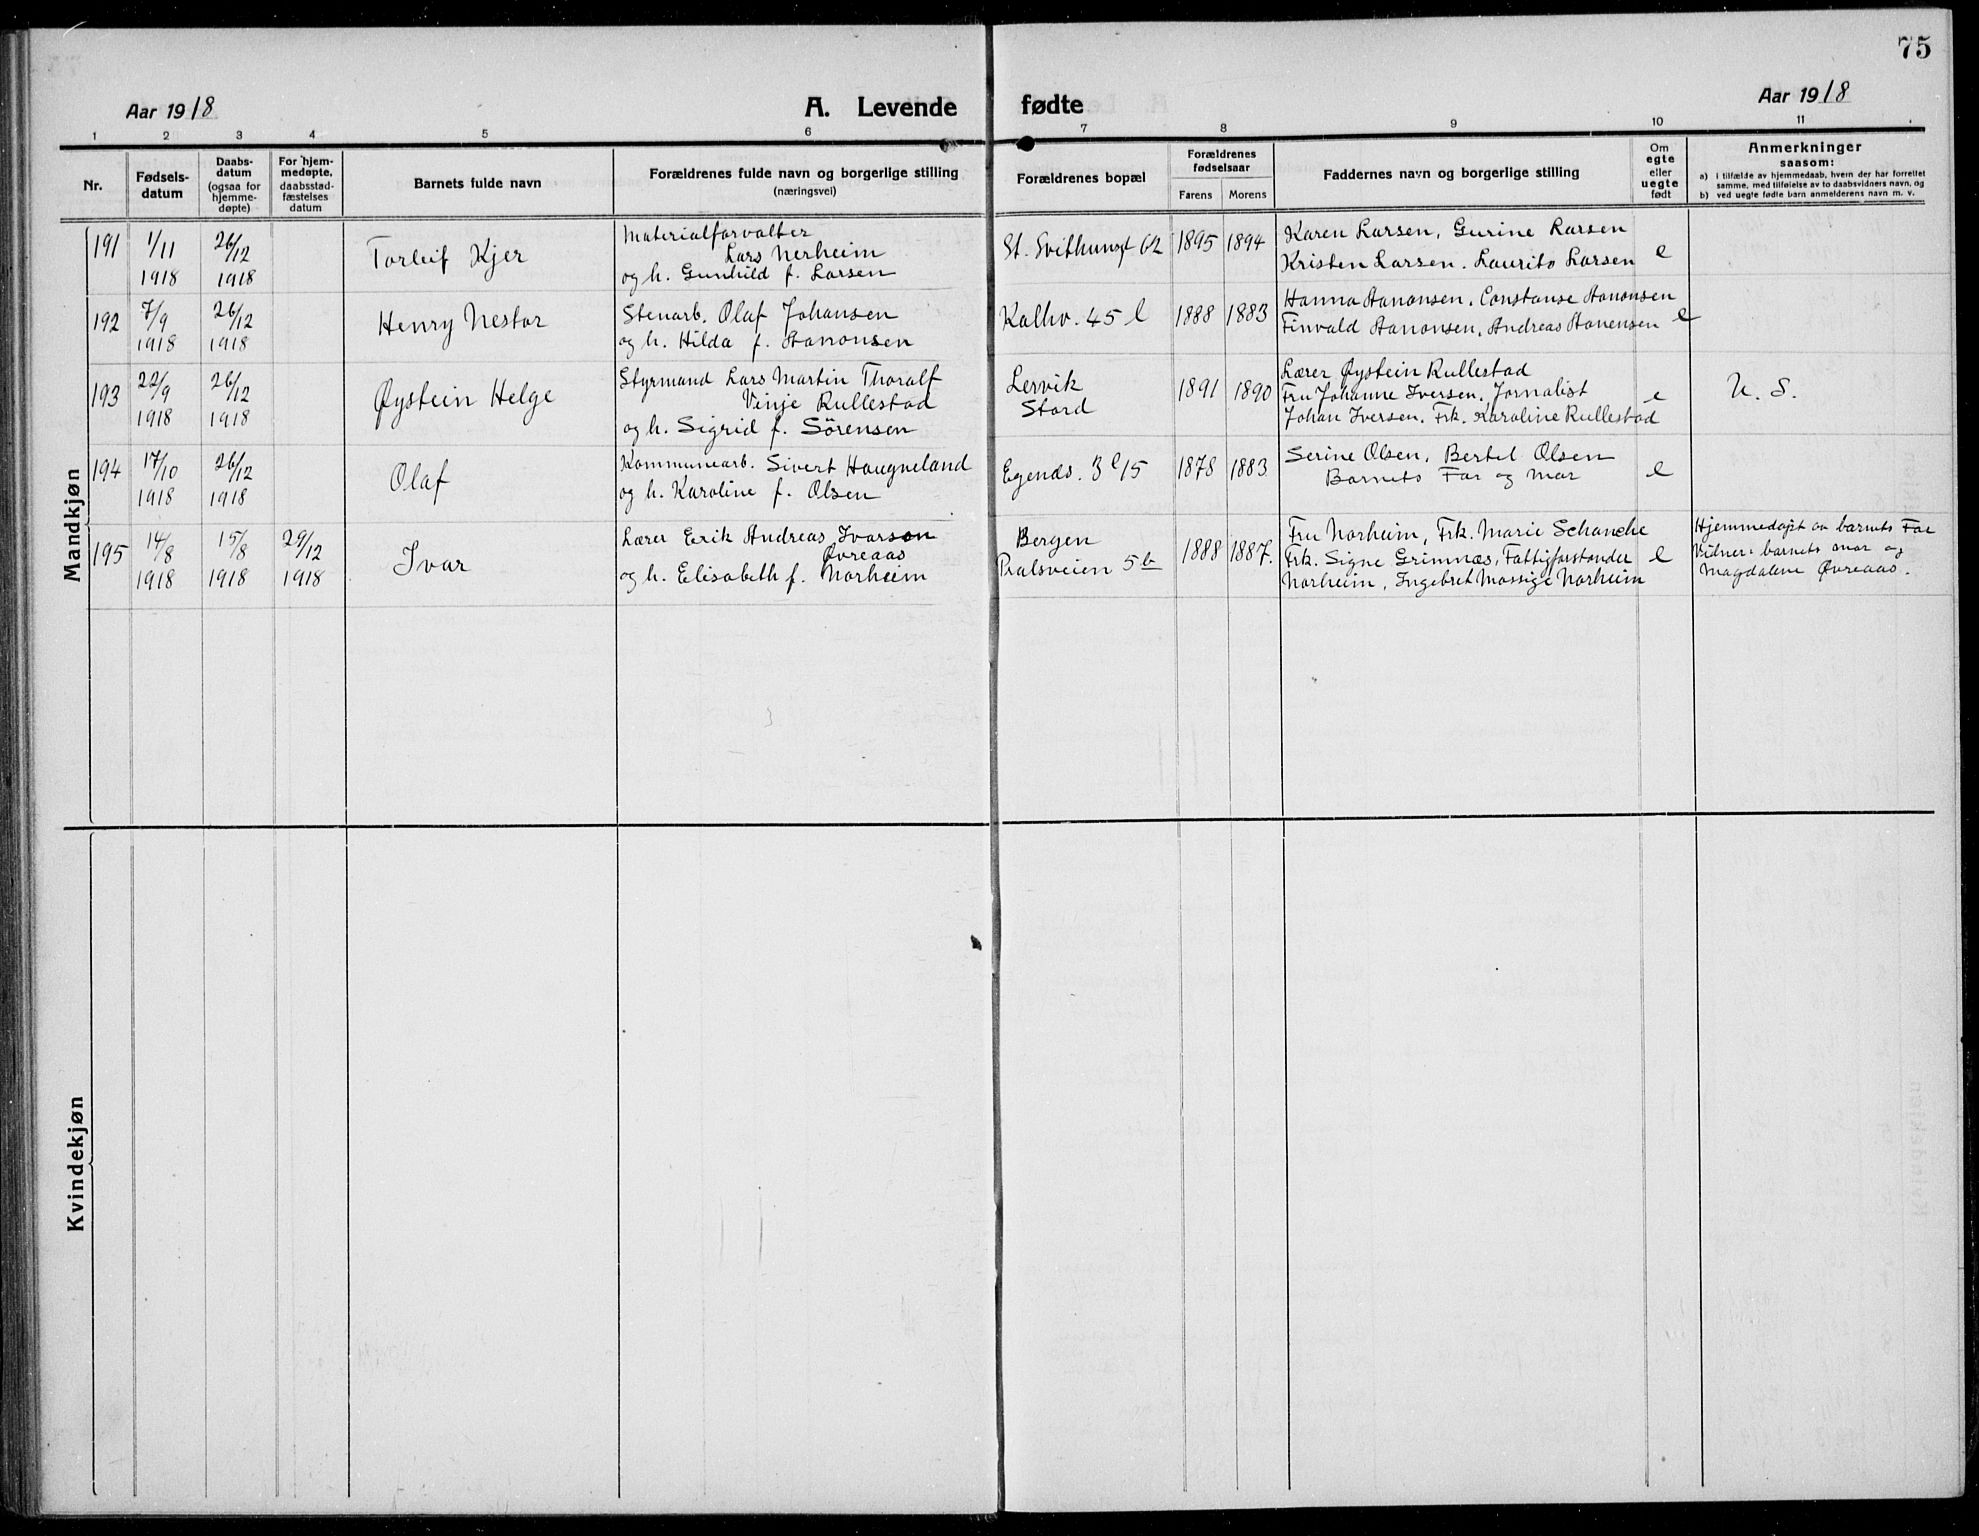 75
Aar 1918
A. Levende fødte
Aar 1918
1 2 3 4 5 6 7 8 9 10 11
Nr.
Fødsels-
datum
Daabs-
datum
(ogsaa for
hjemme-
døpte)
For hjem-
medøpte,
daabsstad-
fæstelses
datum
Barnets fulde navn
Forældrenes fulde navn og borgerlige stilling
(næringsvei)
Forældrenes bopæl
Forældrenes
fødselsaar
Farens Morens
Faddernes navn og borgerlige stilling
Om
egte
eller
uegte
født
Anmerkninger
saasom:
a) i tilfælde av hjemmedaab, hvem der har forrettet
samme, med tilføielse av to daabsvidners navn, og
b) ved uegte fødte barn anmelderens navn m. v.
Mandkjøn
191
1/11
1918
26/12
1918
Torleif Kjer
Materialforvalter
Lars Nerheim
og h. Gunhild f. Larsen
St. Svithunsgt 62
1895 1894
Karen Larsen, Gurine Larsen
Kristen Larsen. Laurits Larsen
e
192
7/9
1918
26/12
1918
Henry Nestor
Stenarb. Olaf Johansen
og h. Hilda f. Aanonsen
Kalhv. 45 l
1888 1883
Hanna Aanonsen, Constanse Aanonsen
Finvald Aanonsen, Andreas Aanensen
e
193
22/9
1918
26/12
1918
Øystein Helge
Styrmand Lars Martin Thoralf
Vinje Rullestad
og h. Sigrid f. Sörensen
Lervik
Stord
1891 1890
Lærer Øystein Rullestad
Fru Johanne Iversen, Jornalist
Johan Iversen. Frk. Karoline Rullestad
e
U. S.
194
17/10
1918
26/12
1918
Olaf
Kommunearb. Sivert Haugneland
og h. Karoline f. Olsen
Egends. 3 l 15
1878 1883
Serine Olsen, Bertel Olsen
Barnets Far og mor
e
195
14/8
1918
15/8
1918
29/12
1918
Ivar
Lærer Erik Andreas Ivarson
Øvreaas
og h. Elisabeth f. Norheim
Bergen
5 b
1888 1887.
Fru Norheim, Frk. Marie Schanche
Frk. Signe Grimnæs, Fattigforstander
Norheim, Ingebret Mossige Norheim
e
Hjemmedøpt av barnets Far
Vidner: barnets mor og
Magdalene Øvreaas.
Kvindekjøn